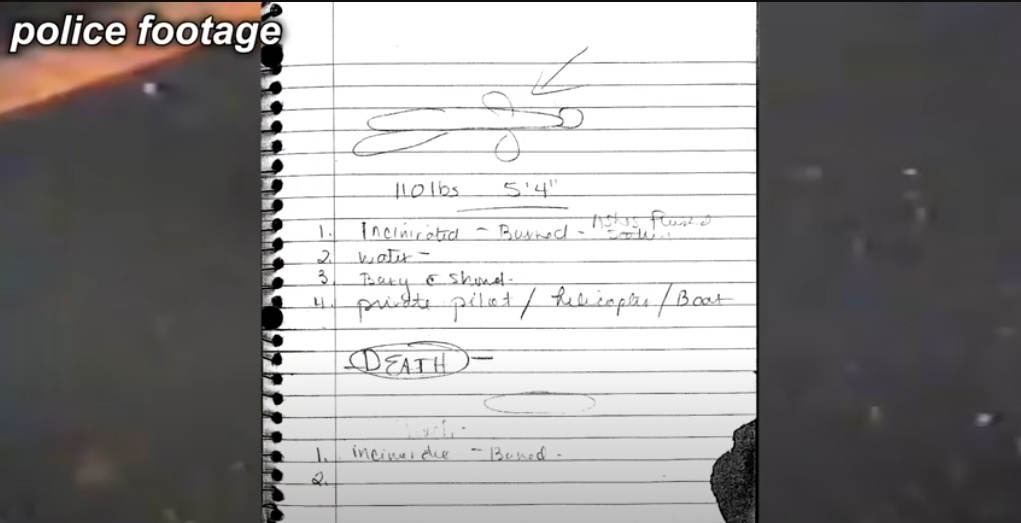 police footage
110lbs 5'4"
1. Incinirated - Burned - Ashes Flushed
2. water -
3. Bury
4. private pilot / helicopter / Boat
DEATH -
1.
2.